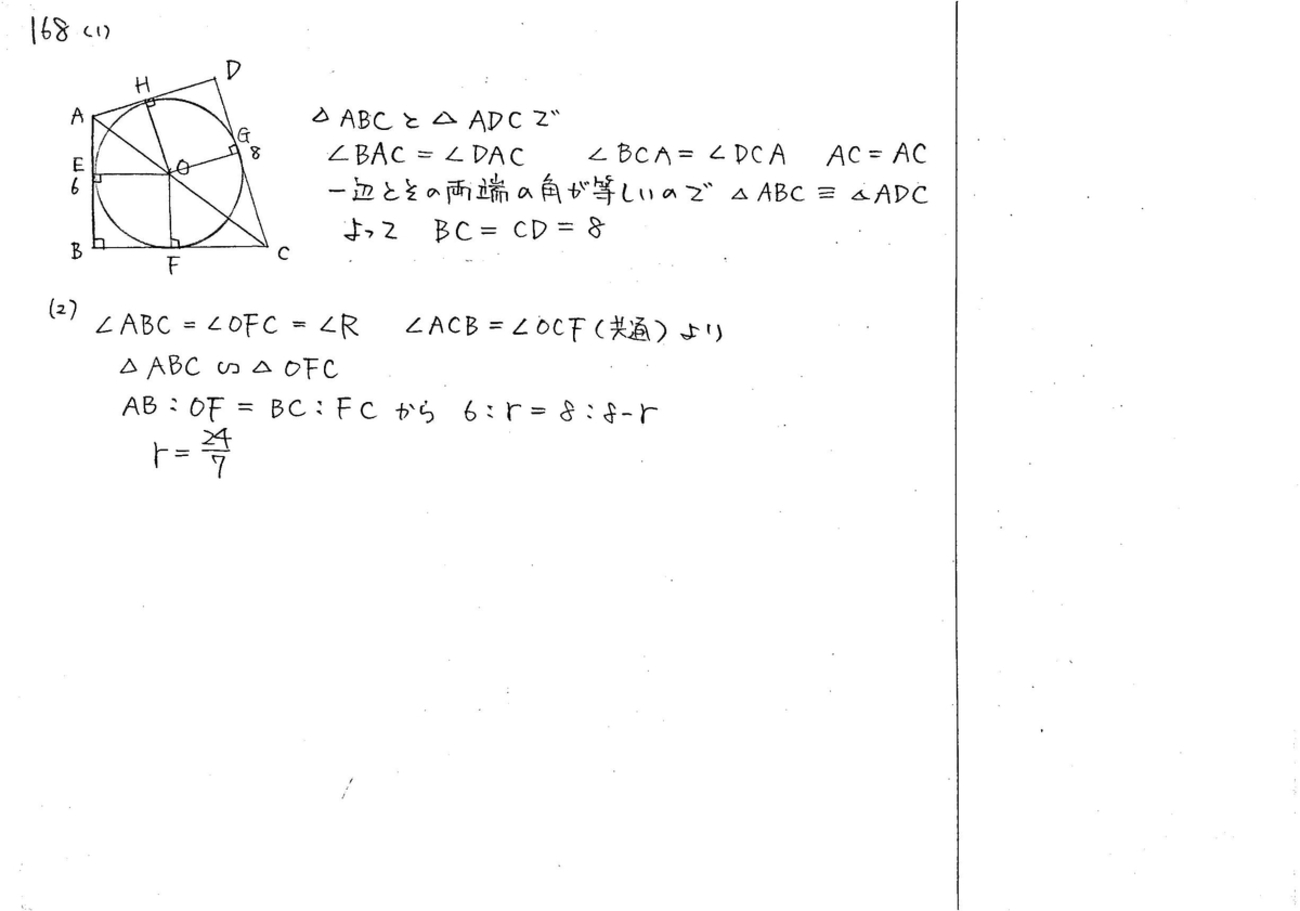 168 (1)
D
H
A
G
8
O
E
6
B
F
C
△ABCと△ADCで
∠BAC = ∠DAC ∠BCA = ∠DCA AC = AC
一辺とその両端の角が等しいので △ABC ≡ △ADC
よって BC = CD = 8
(2)
∠ABC = ∠OFC = ∠R ∠ACB = ∠OCF (共通) より
△ABC ∽ △OFC
AB : OF = BC : FC から 6 : r = 8 : 8-r
r = 24/7